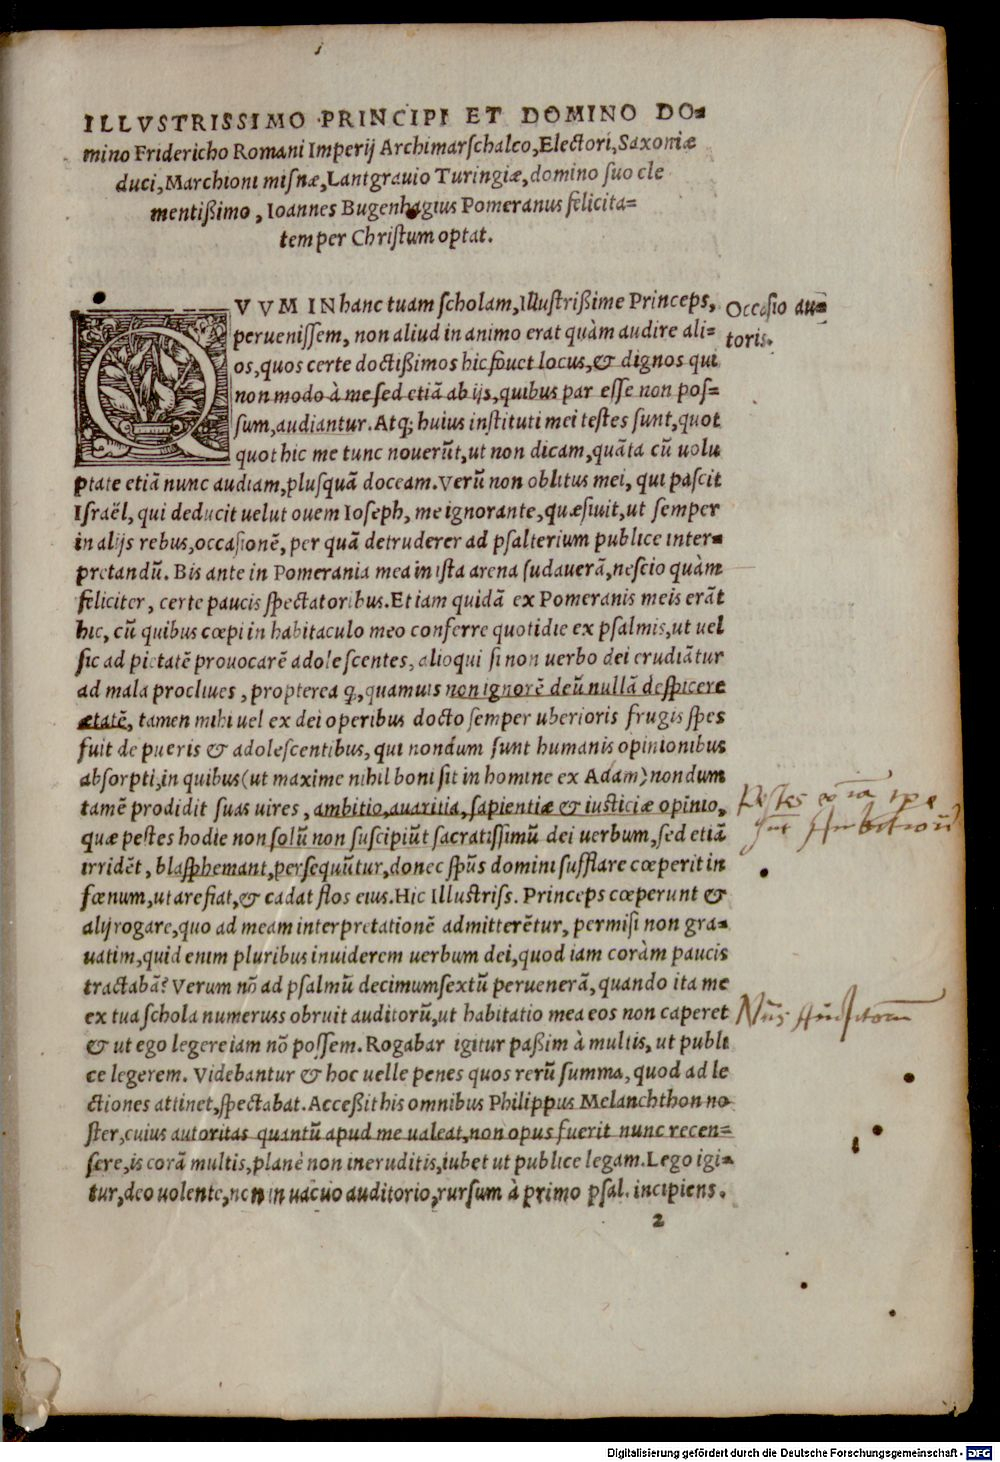 ILLVSTRISSIMO PRINCIPI ET DOMINO DO=
mino Fridericho Romani Imperij Archimarſchalco, Electori, Saxoniæ
duci, Marchioni miſnæ, Lantgrauio Turingiæ, domino ſuo cle
mentißimo, Ioannes Bugenhagius Pomeranus felicita=
tem per Chriſtum optat.
QVVM IN hanc tuam ſcholam, Illuſtrißime Princeps,
Occaſio au=
toris.
perueniſſem, non aliud in animo erat quàm audire ali=
os, quos certe doctißimos hic fouet locus, & dignos qui
non modo à me ſed etiã ab ijs, quibus par eſſe non poſ=
ſum, audiantur. Atq; huius inſtituti mei teſtes ſunt, quot
quot hic me tunc nouerũt, ut non dicam, quãta cũ uolu
ptate etiã nunc audiam, pluſquã doceam. Verũ non oblitus mei, qui paſcit
Iſraël, qui deducit uelut ouem Ioſeph, me ignorante, quæſiuit, ut ſemper
in alijs rebus, occaſionẽ, per quã detruderer ad pſalterium publice inter=
pretandũ. Bis ante in Pomerania mea in iſta arena ſudauerã, neſcio quàm
feliciter, certe paucis ſpectatoribus. Etiam quidã ex Pomeranis meis erãt
hic, cũ quibus cœpi in habitaculo meo conferre quotidie ex pſalmis, ut uel
ſic ad pietatẽ prouocarẽ adoleſcentes, alioqui ſi non uerbo dei erudiãtur
ad mala procliues, propterea q, quamuis non ignorẽ deũ nullã deſpicere
ætatẽ, tamen mihi uel ex dei operibus docto ſemper uberioris frugis ſpes
fuit de pueris & adoleſcentibus, qui nondum ſunt humanis opinionibus
abſorpti, in quibus (ut maxime nihil boni ſit in homine ex Adam) nondum
tamẽ prodidit ſuas uires, ambitio, auaritia, ſapientiæ & iuſticiæ opinio,
quæ peſtes hodie non ſolũ non ſuſcipiũt ſacratiſſimũ dei uerbum, ſed etiã
irridẽt, blaſphemant, perſequũtur, donec ſpũs domini ſufflare cœperit in
fœnum, ut arefiat, & cadat flos eius. Hic Illuſtriſs. Princeps cœperunt &
alij rogare, quo ad meam interpretationẽ admitterẽtur, permiſi non gra=
uatim, quid enim pluribus inuiderem uerbum dei, quod iam coràm paucis
tractabã? Verum nõ ad pſalmũ decimumſextũ peruenerã, quando ita me
ex tua ſchola numeruss obruit auditorũ, ut habitatio mea eos non caperet
& ut ego legere iam nõ poſſem. Rogabar igitur paßim à multis, ut publi
ce legerem. Videbantur & hoc uelle penes quos rerũ ſumma, quod ad le
ctiones attinet, ſpectabat. Acceßit his omnibus Philippus Melanchthon no
ſter, cuius autoritas quantũ apud me ualeat, non opus fuerit nunc recen=
ſere, is corã multis, planè non ineruditis, iubet ut publice legam. Lego igi=
tur, deo uolente, non in uacuo auditorio, rurſum à primo pſal. incipiens.
2
Digitalisierung gefördert durch die Deutsche Forschungsgemeinschaft - DFG